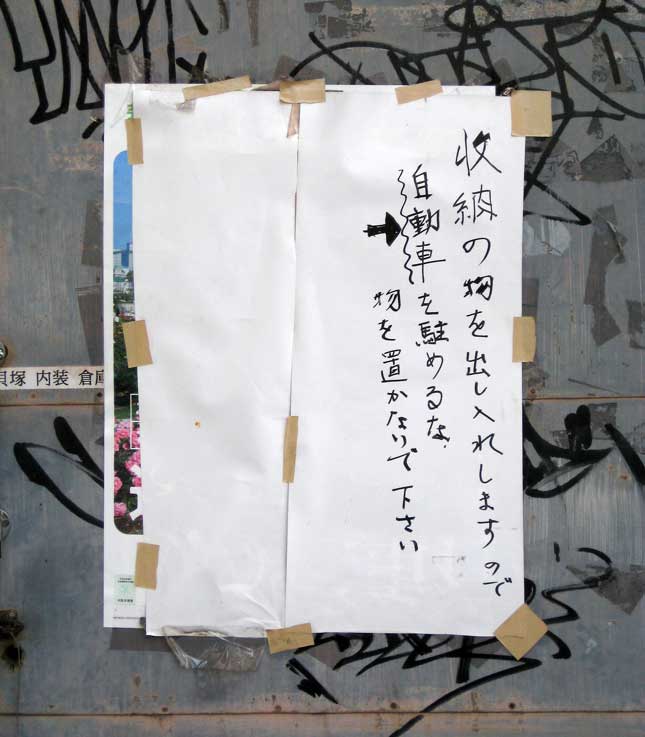 収納の物を出し入れしますので
自動車を駐めるな.
物を置かないで下さい
貝塚 内装 倉庫